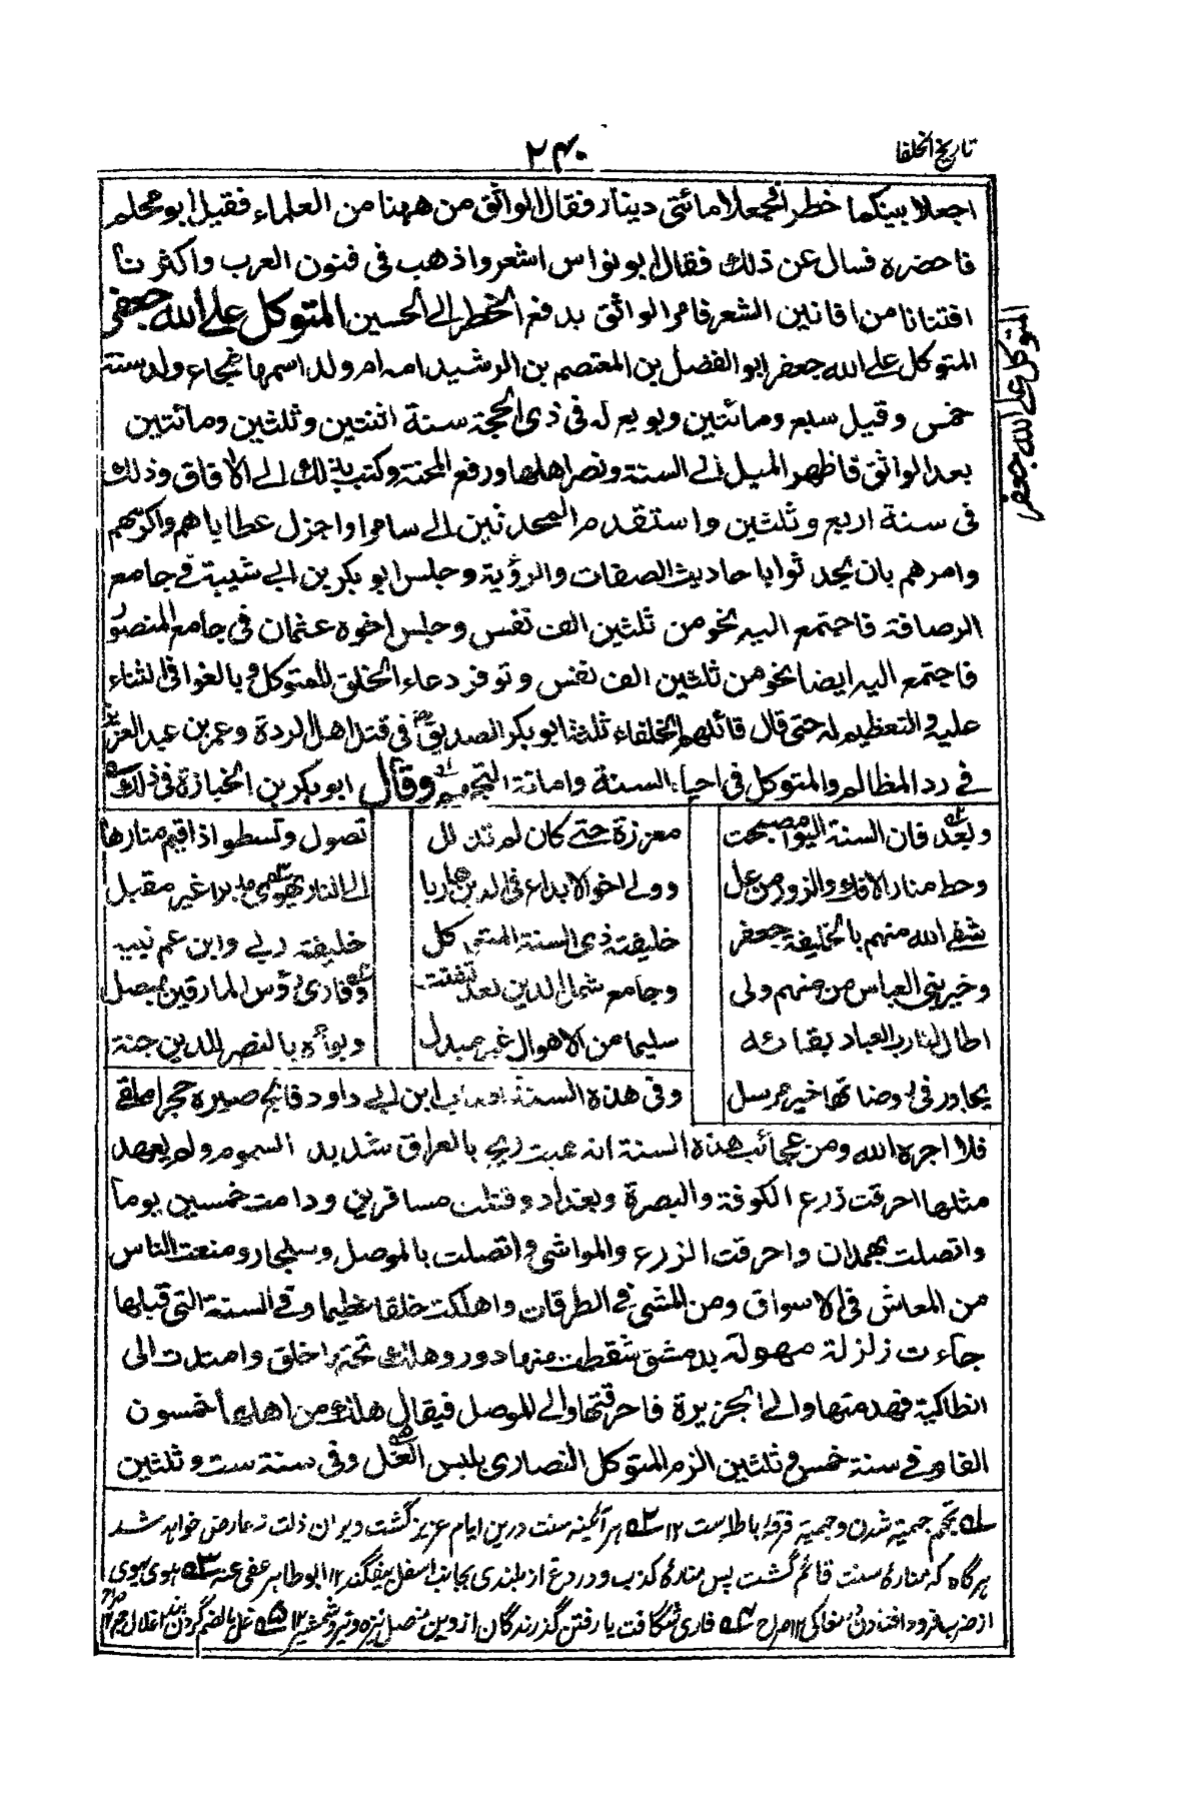 تاريخ الخلفا
۲۴۰
اجعلا بينكما خطرا فجعلا مائتى دينار فقال الواثق من ههنا من العلماء فقيل ابو محلم
فاحضره فسال عن ذلك فقال ابو نواس اشعر واذهب فى فنون العرب واكثرنا
افتنانا من افانين الشعر فامر الواثق بدفع الخطر الى الحسين المتوكل على الله جعفر
المتوكل على الله جعفر ابو الفضل بن المعتصم بن الرشيد امه ام ولد اسمها شجاع ولد سنة
خمس وقيل سبع ومائتين وبويع له فى ذى الحجة سنة اثنتين وثلثين ومائتين
بعد الواثق فاظهر الميل الى السنة ونصر اهلها ورفع المحنة وكتب بذلك الى الافاق وذلك
فى سنة اربع وثلثين واستقدم المحدثين الى سامرا واجزل عطاياهم واكرمهم
وامرهم بان يحدثوا باحاديث الصفات والرؤية وجلس ابو بكر بن ابى شيبة فى جامع
الرصافة فاجتمع اليه نحو من ثلثين الف نفس وجلس اخوه عثمان فى جامع المنصور
فاجتمع اليه ايضا نحو من ثلثين الف نفس وتوفر دعاء الخلق للمتوكل وبالغوا فى الثناء
عليه والتعظيم له حتى قال قائلهم الخلفاء ثلثة ابو بكر الصديق رض فى قتل اهل الردة وعمر بن عبد العزيز
فى رد المظالم والمتوكل فى احياء السنة واماتة التجهم وقال ابو بكر بن الخبازة فى ذلك
وبعد فان السنة اليوم اصبحت معززة حتى كان لم تذلل
تصول وتسطو اذ اقيم منارها
وحط منار الافك والزور من عل وولى اخو الابداع فى الدين هاربا
الى النار يهوى مدبرا غير مقبل
شفى الله منهم بالخليفة جعفر خليفته ذى السنة المتوكل
خليفة ربى وابن عم نبيه
وخير بنى العباس من منهم ولى وجامع شمل الدين بعد تشتت
وفارى رؤس المارقين بمنصل
اطال لنا رب العباد بقائه سليما من الاهوال غير مبدل
وبوأه بالنصر للدين جنة
يجاور فى روضاتها خير مرسل وفى هذه السنة اصاب ابن ابى داود فالج صيره حجرا ملقى
فلا اجره الله ومن عجائب هذه السنة انه هبت ريح بالعراق شديد السموم ولم يعهد
مثلها احرقت زرع الكوفة والبصرة وبغداد وقتلت مسافرين ودامت خمسين يوما
واتصلت بهمدان واحرقت الزرع والمواشى واتصلت بالموصل وسنجار ومنعت الناس
من المعاش فى الاسواق ومن المشى فى الطرقات واهلكت خلقا عظيما وفى السنة التى قبلها
جاءت زلزلة مهولة بدمشق سقطت منها دور وهلك تحتها خلق وامتدت الى
انطاكية فهدمتها والى الجزيرة فاحرقتها والى الموصل فيقال هلك من اهلها خمسون
الفا وفى سنة خمس وثلثين الزم المتوكل النصارى بلبس الغل وفى سنة ست وثلثين
المتوكل على الله جعفر
له تجهم جهمية شدن وجهمية فرقۂ باطله است ۱۲ ۲ه هر آئينه سنت درين ايام عزيز گشت
هرگاه كه منارۂ سنت قائم گشت پس منارۂ كذب و دروغ از بلندى بجانب اسفل بيفگند ۱۲ ابو طاهر عفى عنه ۳ه هوى يهوى